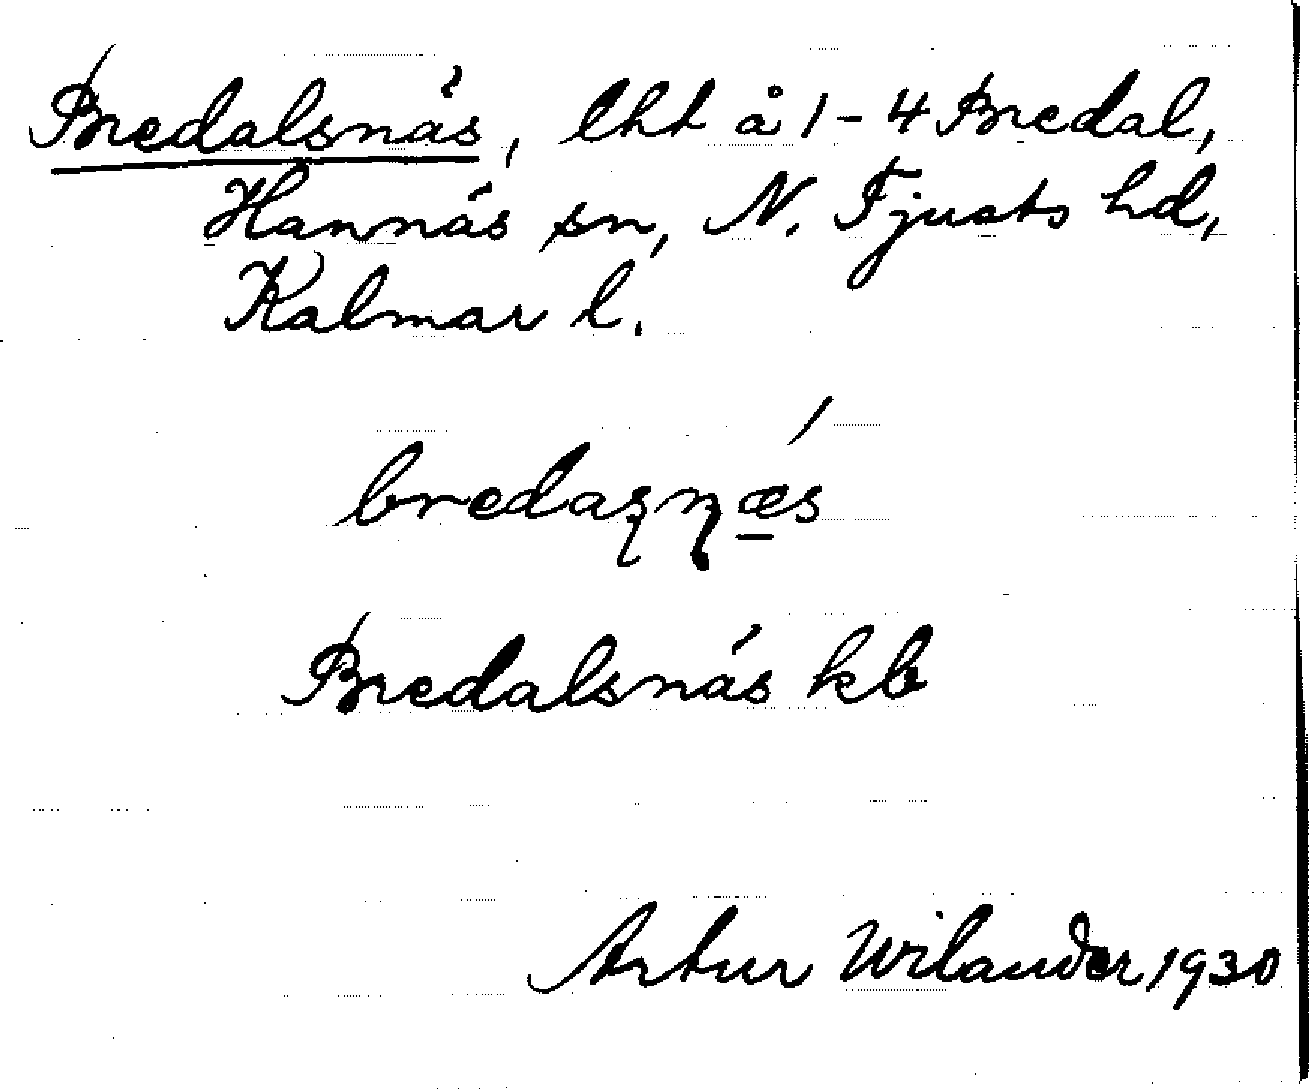 Bredalsnäs, lht å 1-4 Bredal,
Hannäs sn, N. Tjusts hd,
Kalmar l.
bredaʂɳǽ̲s
Bredalsnäs kb
Artur Wilander 1930